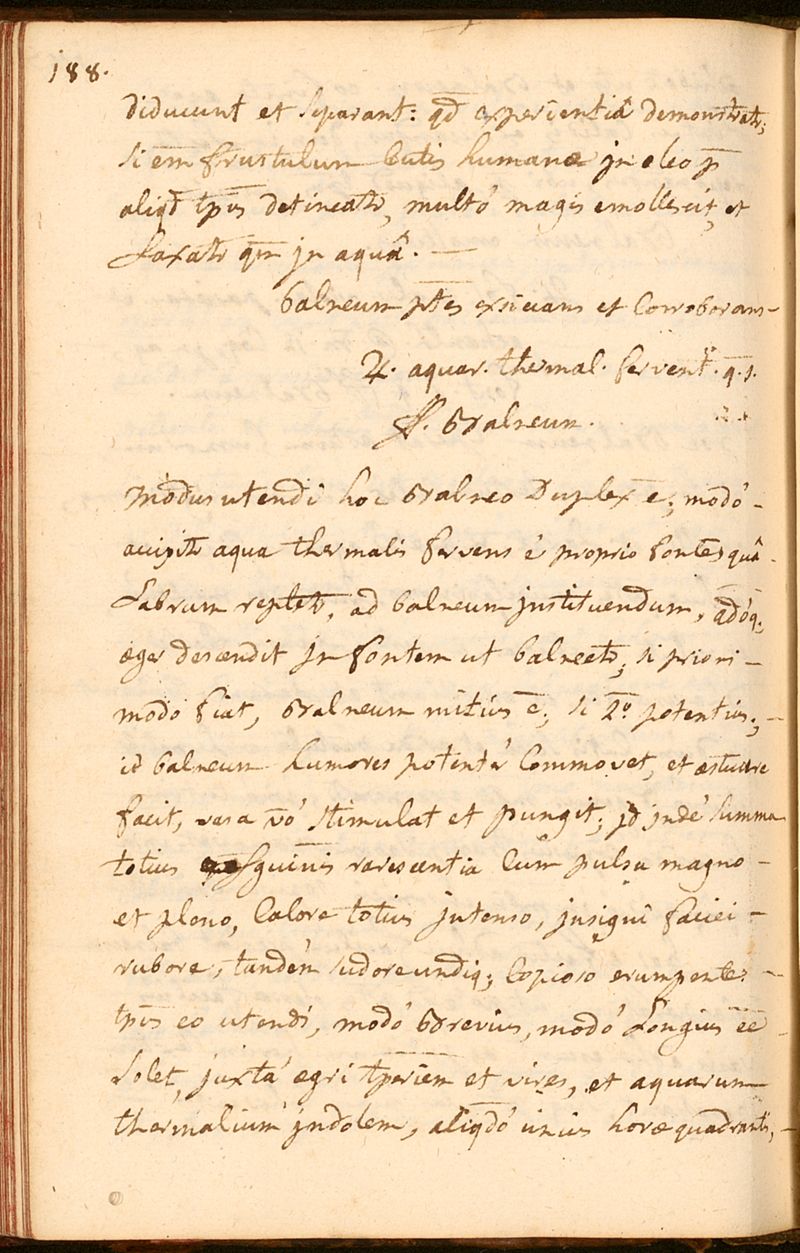 188.
diducunt et separant: qd experientiâ demonstratr;
si em̄ frustulum Cutis humanæ in oleo p̄
aliqd tp̄is detineatr, multó magis emollescit, et
Laxatr qm̄ in aquâ. —
balneum ptes exsiccans et Corroborans —
♃. aquar. thermal. fervent. q. s.
ff. Balneum.
Modus utendi hoc Balneo Duplex ē; modó —
accipitr aqua thermalis fervens é proprio fonte, quâ
Labrum repletr, ad balneum instituendum,
æger descendit in fontem ut balneetr; si priori —
modo fiat, Balneum mitius ē; si 2º potentius; —
id balneum humores potentér Commovet, et æstuare
facit, vasa vó stimulat et pungit; indé summa
totius Sguinis rarescentia Cum pulsu magno —
et pleno, Calore totius intenso, insigni faciei —
rubore, tandém sudore undiq; Copioso erumpente: —
tp̄is eo utendi, modó Brevius, modó Longius ēē
solet, juxtá ægri tperiem et vires, et aquarum —
thermalium indolem, aliqdó unius horæ quadrantis, —